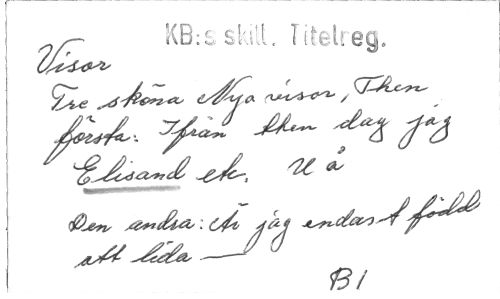 KB:s skill. Titelreg.
Visor
Tre sköna Nya visor, Then
första: Ifrån then dag jag
Elisand etc. U å
Den andra: Är jag endast född
att lida —
B1